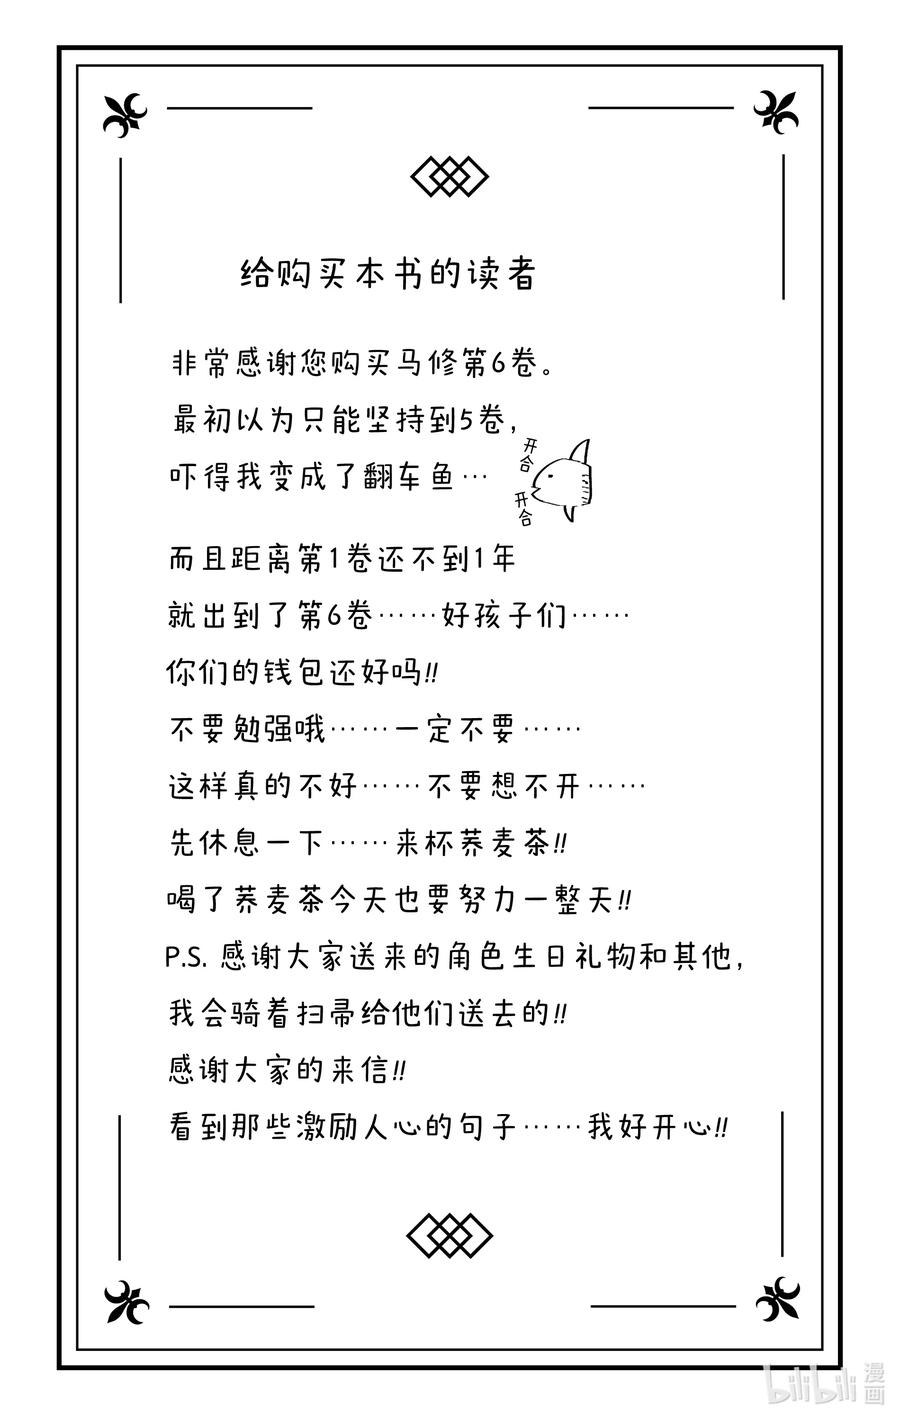 给购买本书的读者
非常感谢您购买马修第6卷。
最初以为只能坚持到5卷,
吓得我变成了翻车鱼…
开合
开合
而且距离第1卷还不到1年
就出到了第6卷……好孩子们……
你们的钱包还好吗!!
不要勉强哦……一定不要……
这样真的不好……不要想不开……
先休息一下……来杯荞麦茶!!
喝了荞麦茶今天也要努力一整天!!
P.S. 感谢大家送来的角色生日礼物和其他,
我会骑着扫帚给他们送去的!!
感谢大家的来信!!
看到那些激励人心的句子……我好开心!!
bilibili 漫画